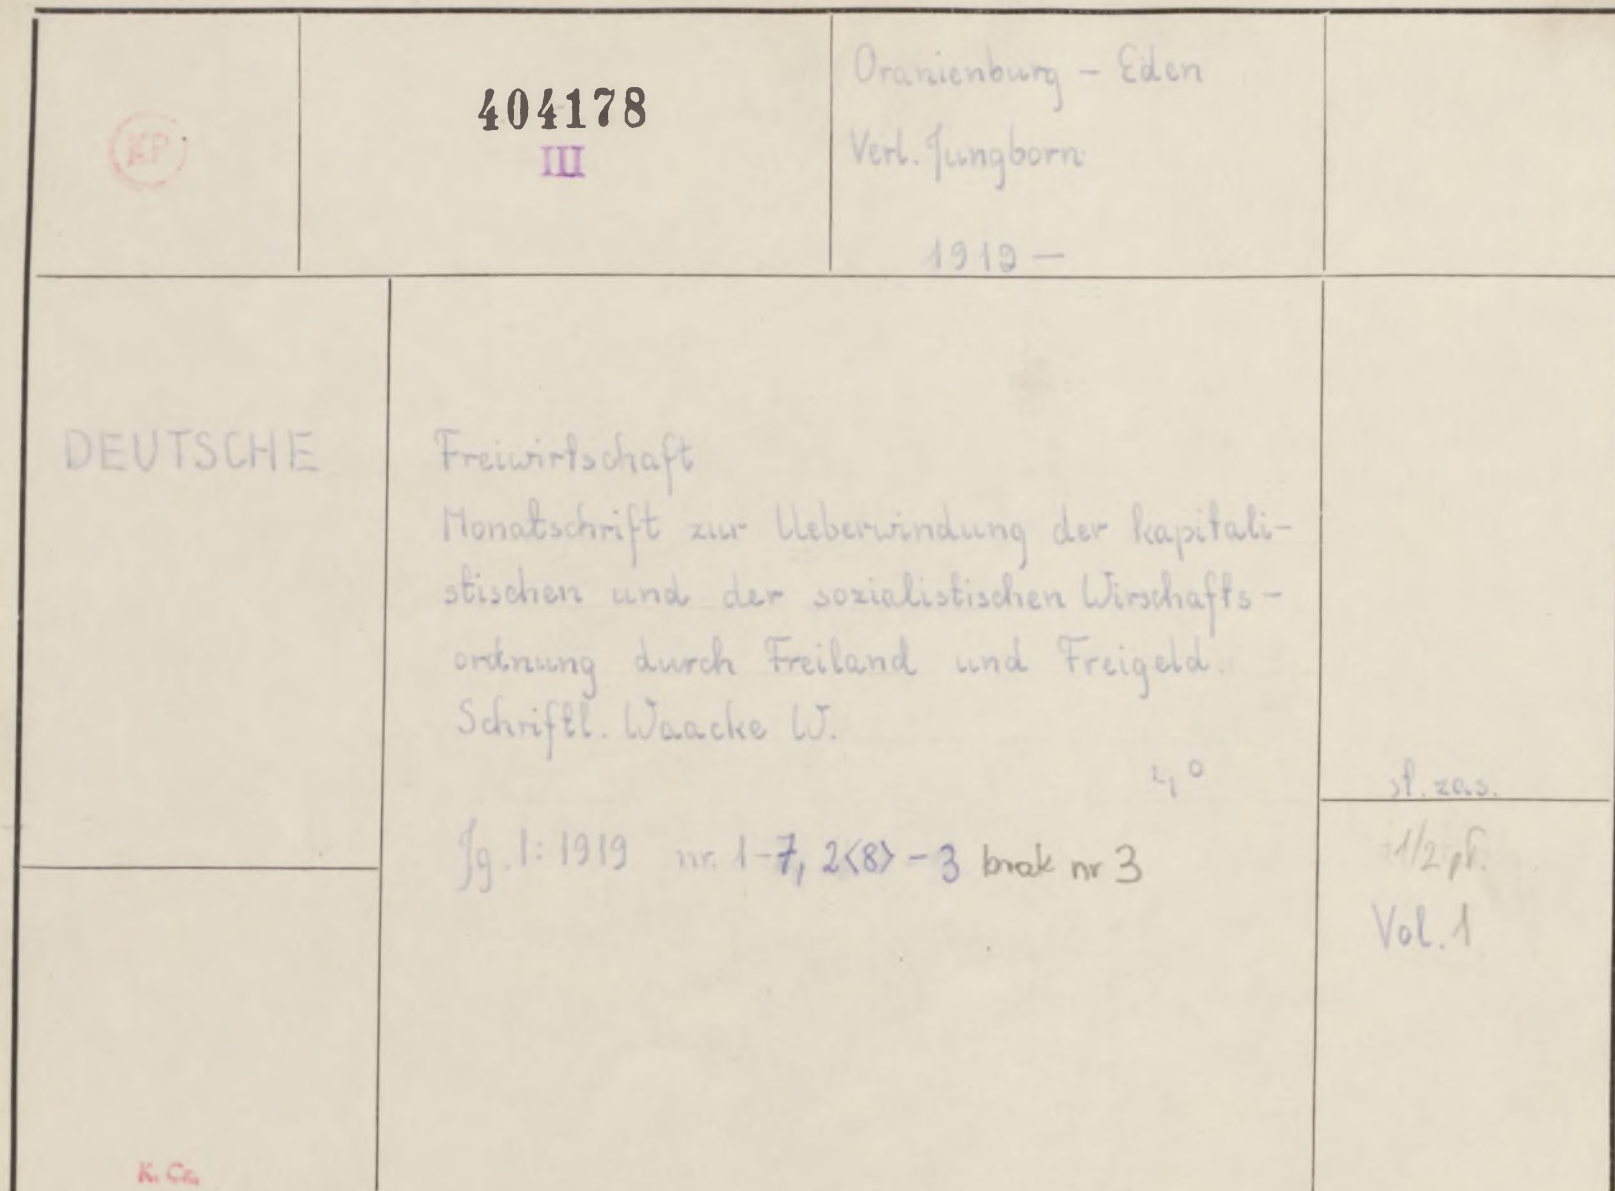 KP
404178
III
Oranienburg - Eden
Verl. Jungborn
1919 -
DEUTSCHE
Freiwirtschaft
Monatschrift zur Ueberwindung der kapitali-
stischen und der sozialistischen Wirschafts-
ordnung durch Freiland und Freigeld.
Schriftl. Waacke W.
4°
st. zas.
Jg. 1: 1919 nr. 1-7, 2<8> - 3 brak nr 3
1/2 pł.
Vol. 1
K. Cz.